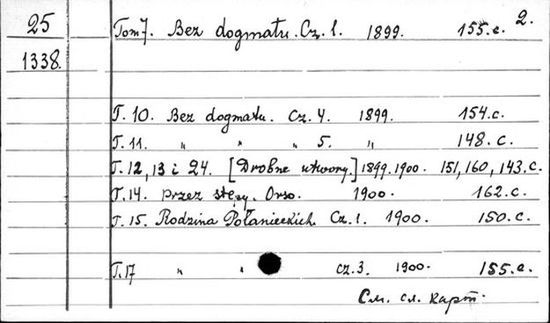 25 Tom 7. Bez dogmatu. Cz. 1. 1899. 155.c. 2.
1338.
T. 10. Bez dogmatu. Cz. 4. 1899. 154.c.
T. 11. " " " 5. " 148.c.
T. 12, 13 i 24. [Drobne utwory.] 1899.1900. 151, 160, 143.c.
T. 14. Przez stepy. Orso. 1900. 162.c.
T. 15. Rodzina Połanieckich. Cz. 1. 1900. 150.c.
T. 17 " " cz. 3. 1900. 155.c.
См. сл. карт.